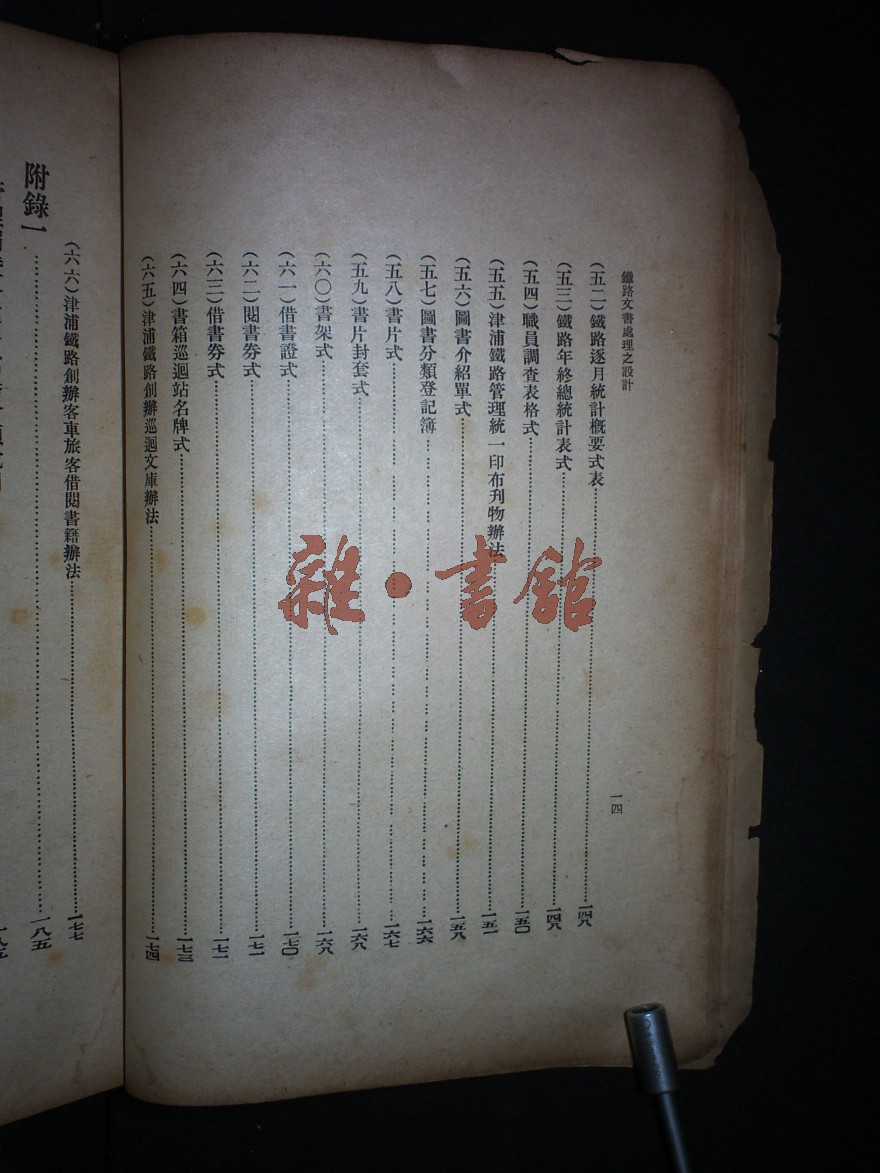 鐵路文書處理之設計
一四
(五二)鐵路逐月統計概要式表……一四八
(五三)鐵路年終總統計表式……一四八
(五四)職員調查表格式……一五〇
(五五)津浦鐵路管理統一印布刊物辦法……一五一
(五六)圖書介紹單式……一五八
(五七)圖書分類登記簿……一六六
(五八)書片式……一六七
(五九)書片封套式……一六八
(六〇)書架式……一六八
(六一)借書證式……一七〇
(六二)閱書券式……一七一
(六三)借書券式……一七二
(六四)書箱巡迴站名牌式……一七三
(六五)津浦鐵路創辦巡迴文庫辦法……一七四
(六六)津浦鐵路創辦客車旅客借閱書籍辦法……一七七
附錄一……一八五
雜·書館